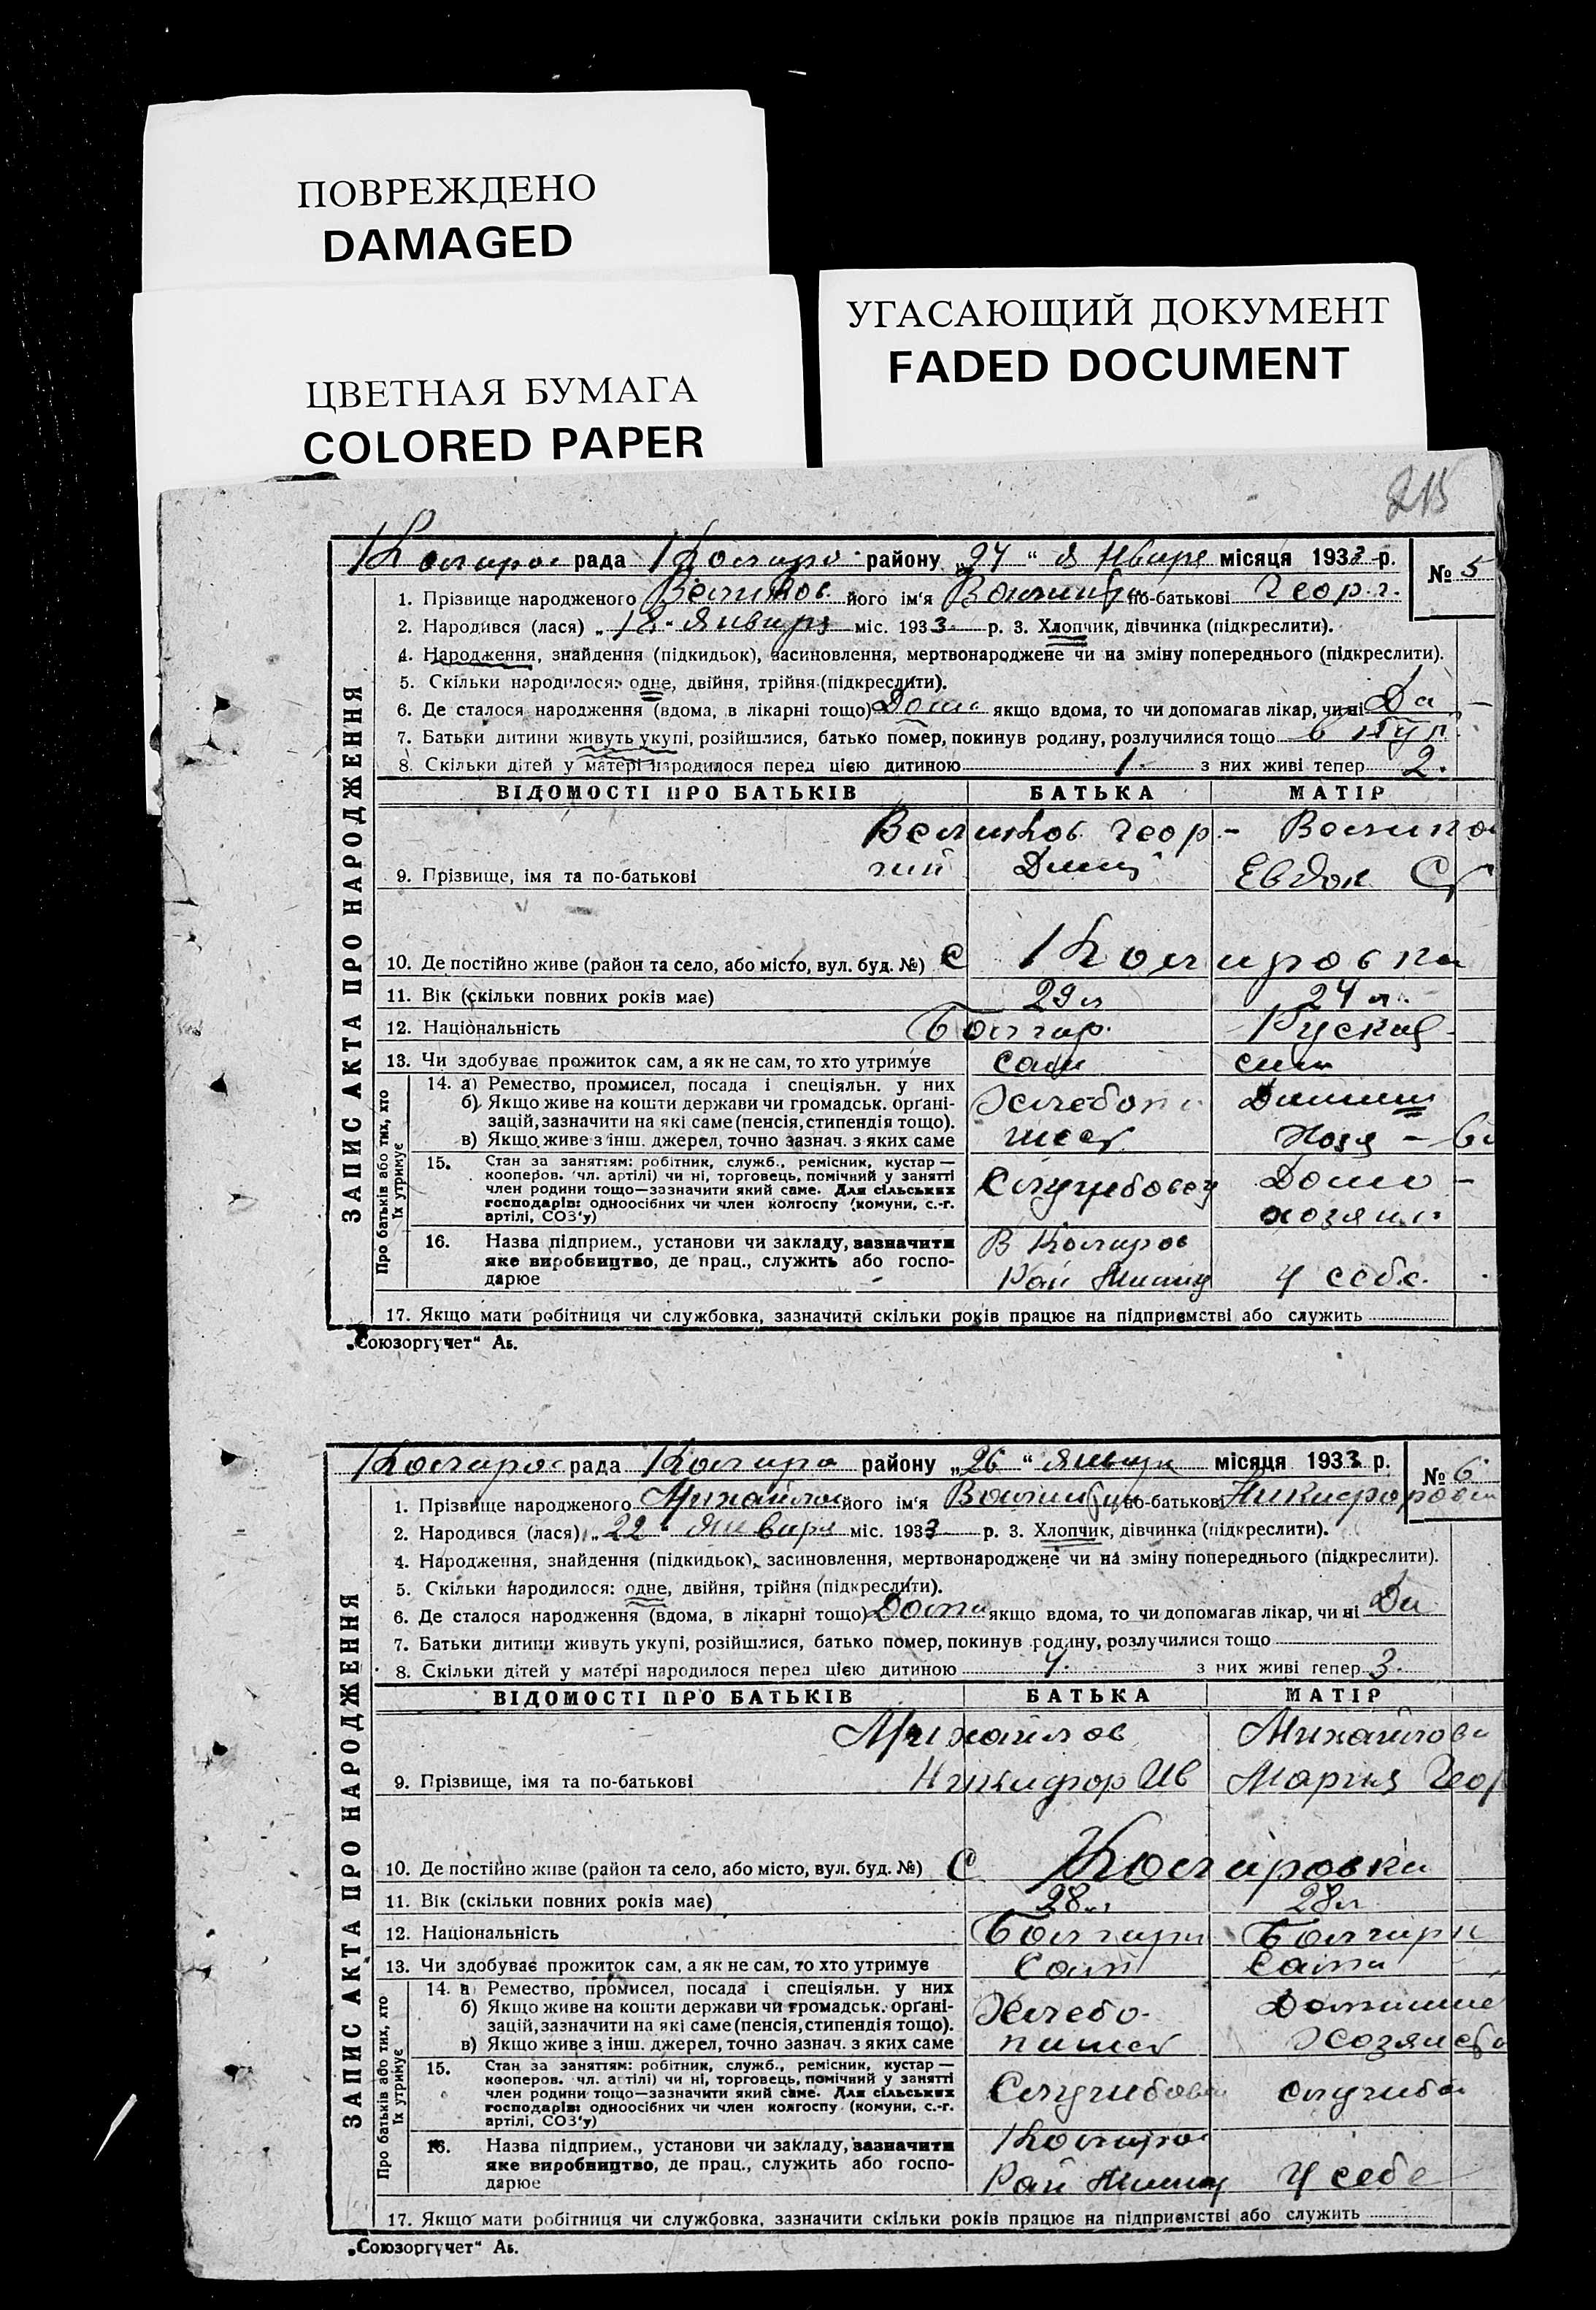 ПОВРЕЖДЕНО
DAMAGED
ЦВЕТНАЯ БУМАГА
COLORED PAPER
УГАСАЮЩИЙ ДОКУМЕНТ
FADED DOCUMENT
215
рада району „27“ Января місяця 1933 р. № 5
1. Прізвище народженого Великов його ім‘я по-батькові Георг.
2. Народився (лася) „18“ Января міс. 1933 р. 3. Хлопчик, дівчинка (підкреслити).
4. Народження, знайдення (підкидьок), засиновлення, мертвонароджене чи на зміну попереднього (підкреслити).
5. Скільки народилося: одне, двійня, трійня (підкреслити).
6. Де сталося народження (вдома, в лікарні тощо) Дома якщо вдома, то чи допомагав лікар, чи ні Да
7. Батьки дитини живуть укупі, розійшлися, батько помер, покинув родину, розлучилися тощо
8. Скільки дітей у матері народилося перед цією дитиною 1 з них живі тепер 2.
ЗАПИС АКТА ПРО НАРОДЖЕННЯ
ВІДОМОСТІ ПРО БАТЬКІВ БАТЬКА МАТІР
Великов Геор-
9. Прізвище, імя та по-батькові гий Дмит Евдок
10. Де постійно живе (район та село, або місто, вул. буд. №) С Коларовка
11. Вік (скільки повних років має) 29 л 24 л.
12. Національність Болгар. Руская
13. Чи здобуває прожиток сам, а як не сам, то хто утримує сам
Про батьків або тих, хто їх утримує
14. а) Ремество, промисел, посада і спеціяльн. у них
б) Якщо живе на кошти держави чи громадськ. органі-
зацій, зазначити на які саме (пенсія, стипендія тощо).
в) Якщо живе з інш. джерел, точно зазнач. з яких саме
15. Стан за заняттям: робітник, служб., ремісник, кустар —
кооперов. чл. артілі) чи ні, торговець, помічний у занятті
член родини тощо—зазначити який саме. Для сільських
господарів: одноосібних чи член колгоспу (комуни, с.-г.
артілі, СОЗ‘у)
Домо-
хозяин
16. Назва підприєм., установи чи закладу, зазначити
яке виробництво, де прац., служить або госпо-
дарює
В Коларов
Рай у себе.
17. Якщо мати робітниця чи службовка, зазначити скільки років працює на підприємстві або служить
„Союзоргучет“ Аь.
рада району „26“ Января місяця 1933 р. № 6
1. Прізвище народженого Михайлов його ім‘я по-батькові Никифоров
2. Народився (лася) „22“ Января міс. 1933 р. 3. Хлопчик, дівчинка (підкреслити).
4. Народження, знайдення (підкидьок), засиновлення, мертвонароджене чи на зміну попереднього (підкреслити).
5. Скільки народилося: одне, двійня, трійня (підкреслити).
6. Де сталося народження (вдома, в лікарні тощо) Дома якщо вдома, то чи допомагав лікар, чи ні Да
7. Батьки дитини живуть укупі, розійшлися, батько помер, покинув родину, розлучилися тощо
8. Скільки дітей у матері народилося перед цією дитиною з них живі тепер 3.
ЗАПИС АКТА ПРО НАРОДЖЕННЯ
ВІДОМОСТІ ПРО БАТЬКІВ БАТЬКА МАТІР
Михайлов Михайлова
9. Прізвище, імя та по-батькові Никифор Ив Мария Геор
10. Де постійно живе (район та село, або місто, вул. буд. №) С Коларовка
11. Вік (скільки повних років має) 28 л 28 л
12. Національність Болгари Болгарк
13. Чи здобуває прожиток сам, а як не сам, то хто утримує Сам Сама
Про батьків або тих, хто їх утримує
14. а) Ремество, промисел, посада і спеціяльн. у них
б) Якщо живе на кошти держави чи громадськ. органі-
зацій, зазначити на які саме (пенсія, стипендія тощо).
в) Якщо живе з інш. джерел, точно зазнач. з яких саме
15. Стан за заняттям: робітник, служб., ремісник, кустар —
кооперов. чл. артілі) чи ні, торговець, помічний у занятті
член родини тощо—зазначити який саме. Для сільських
господарів: одноосібних чи член колгоспу (комуни, с.-г.
артілі, СОЗ‘у)
16. Назва підприєм., установи чи закладу, зазначити
яке виробництво, де прац., служить або госпо-
дарює
Рай у себе
17. Якщо мати робітниця чи службовка, зазначити скільки років працює на підприємстві або служить
„Союзоргучет“ Аь.